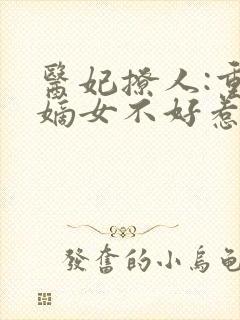 醫妃撩人:重
嫡女不好惹
發奮的小烏龜